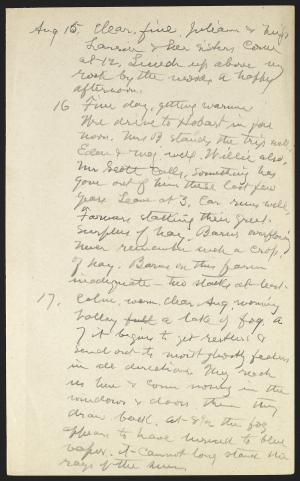 Aug 15. Clear, fine, Julian & Miss
Lawson & her sisters come
at 12. Lunch up above my
rock by the woods, a happy
afternoon.
16 Fine day, getting warmer
We drive to Hobart in fore
noon. Mrs B. stands the trip well,
Eden & Mag well. Willie also,
Mr Scott fails, something has
gone out of him these last few
years. Leave at 3. Car runs well,
Farmers stacking their great
surplus of hay. Barns overflowing
Never remember such a crop
of hay. Barns on this farm
inadequate - two stacks at least.
17. Calm, warm, clear Aug morning
Valley full a lake of fog. At
7 it begins to get restless &
send out its most ghostly feelers
in all directions. They reach
us here & come nosing in the
windows & doors then they
draw back. At 8 1/2 the fog
appears to have turned to blue
vapor. It cannot long stand the
rays of the sun.